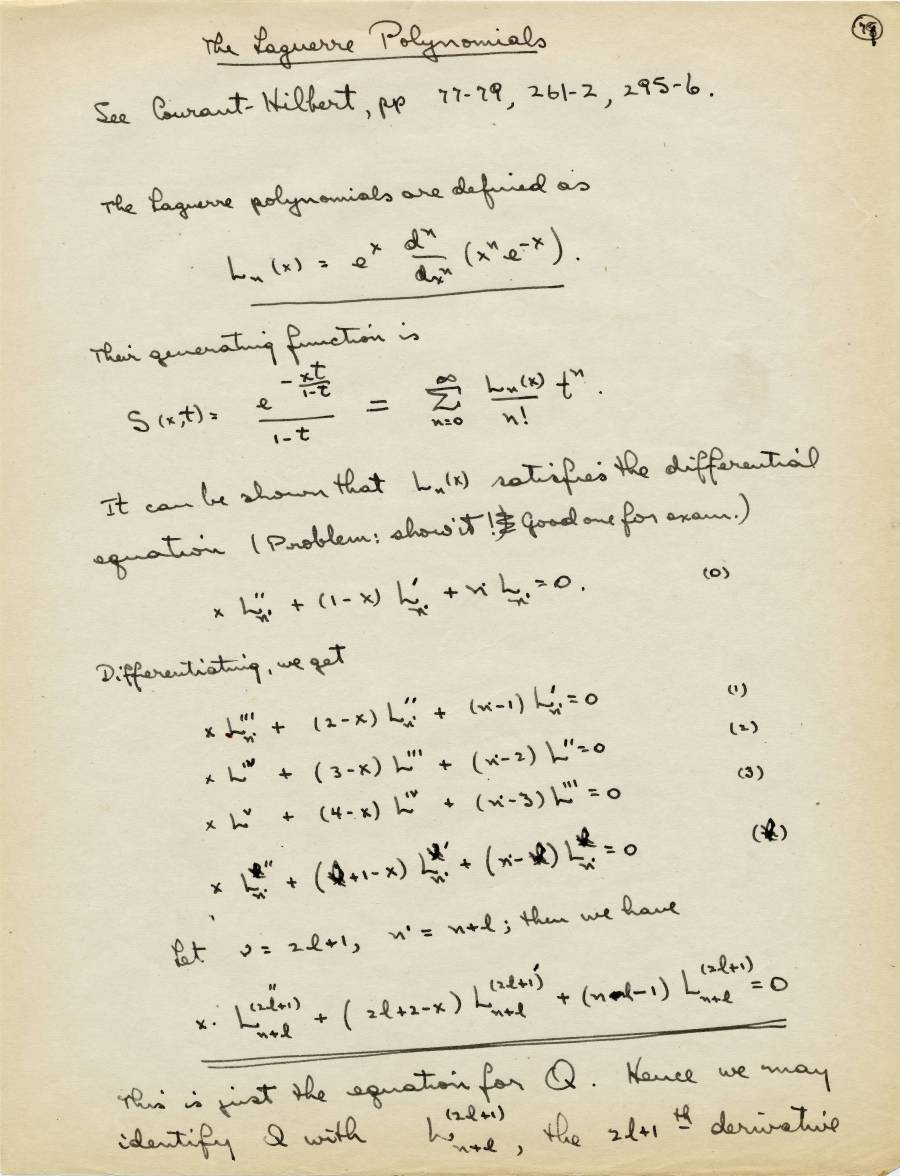 78
The Laguerre Polynomials
See Courant-Hilbert, pp 77-79, 261-2, 295-6.
The Laguerre polynomials are defined as
Lₙ(x) = eˣ dⁿ/dxⁿ (xⁿ e⁻ˣ).
Their generating function is
S(x,t) = e^(-xt/(1-t)) / (1-t) = ∑_{n=0}^{∞} Lₙ(x)/n! tⁿ.
It can be shown that Lₙ(x) satisfies the differential
equation (Problem: show it! Good one for exam.)
x Lₙ'″ + (1-x) Lₙ'′ + n' Lₙ' = 0. (0)
Differentiating, we get
x Lₙ'‴ + (2-x) Lₙ'″ + (n'-1) Lₙ'′ = 0 (1)
x Lᴵⱽ + (3-x) L‴ + (n'-2) L″ = 0 (2)
x Lⱽ + (4-x) Lᴵⱽ + (n'-3) L‴ = 0 (3)
x L_{n'}″ + ( +1-x) L_{n'}′ + (n'- ) L_{n'} = 0
Let ν = 2l+1, n' = n+l; then we have
x· L_{n+l}^{(2l+1)″} + (2l+2-x) L_{n+l}^{(2l+1)′} + (n-l-1) L_{n+l}^{(2l+1)} = 0
This is just the equation for Q. Hence we may
identify Q with L_{n+l}^{(2l+1)}, the 2l+1 th derivative